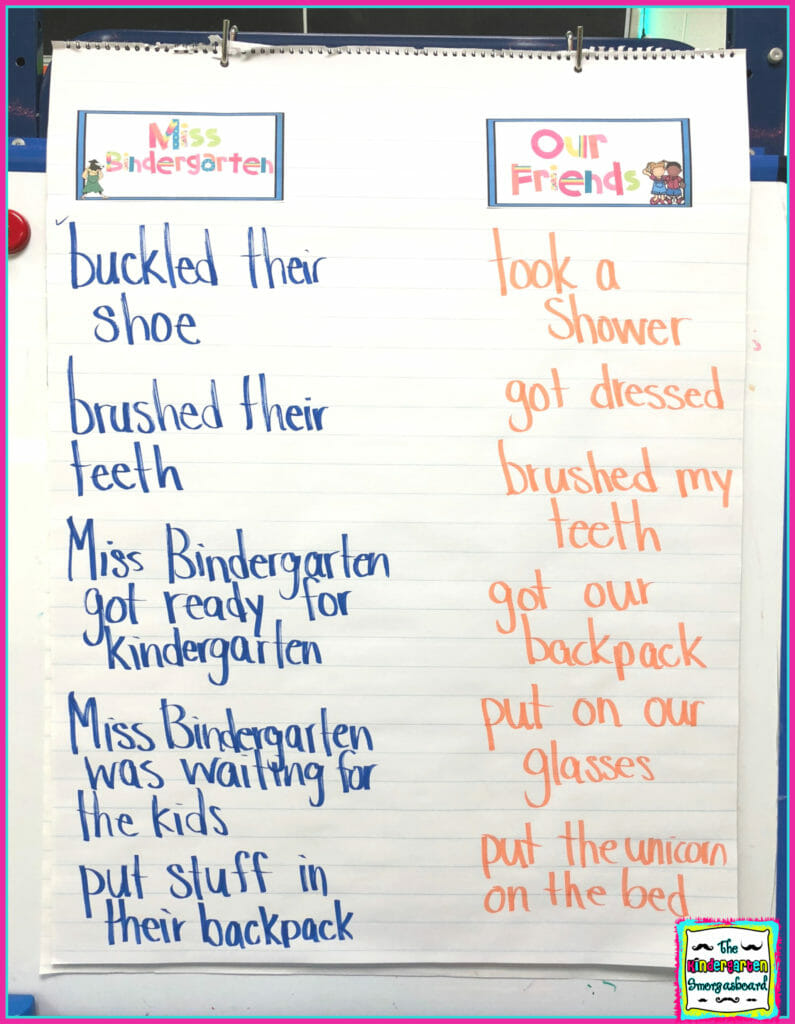 Miss
Bindergarten
buckled their
shoe
brushed their
teeth
Miss Bindergarten
got ready for
kindergarten
Miss Bindergarten
was waiting for
the kids
put stuff in
their backpack
Our
Friends
took a
Shower
got dressed
brushed my
teeth
got our
backpack
put on our
glasses
put the unicorn
on the bed
The
Kindergarten
Smorgasboard